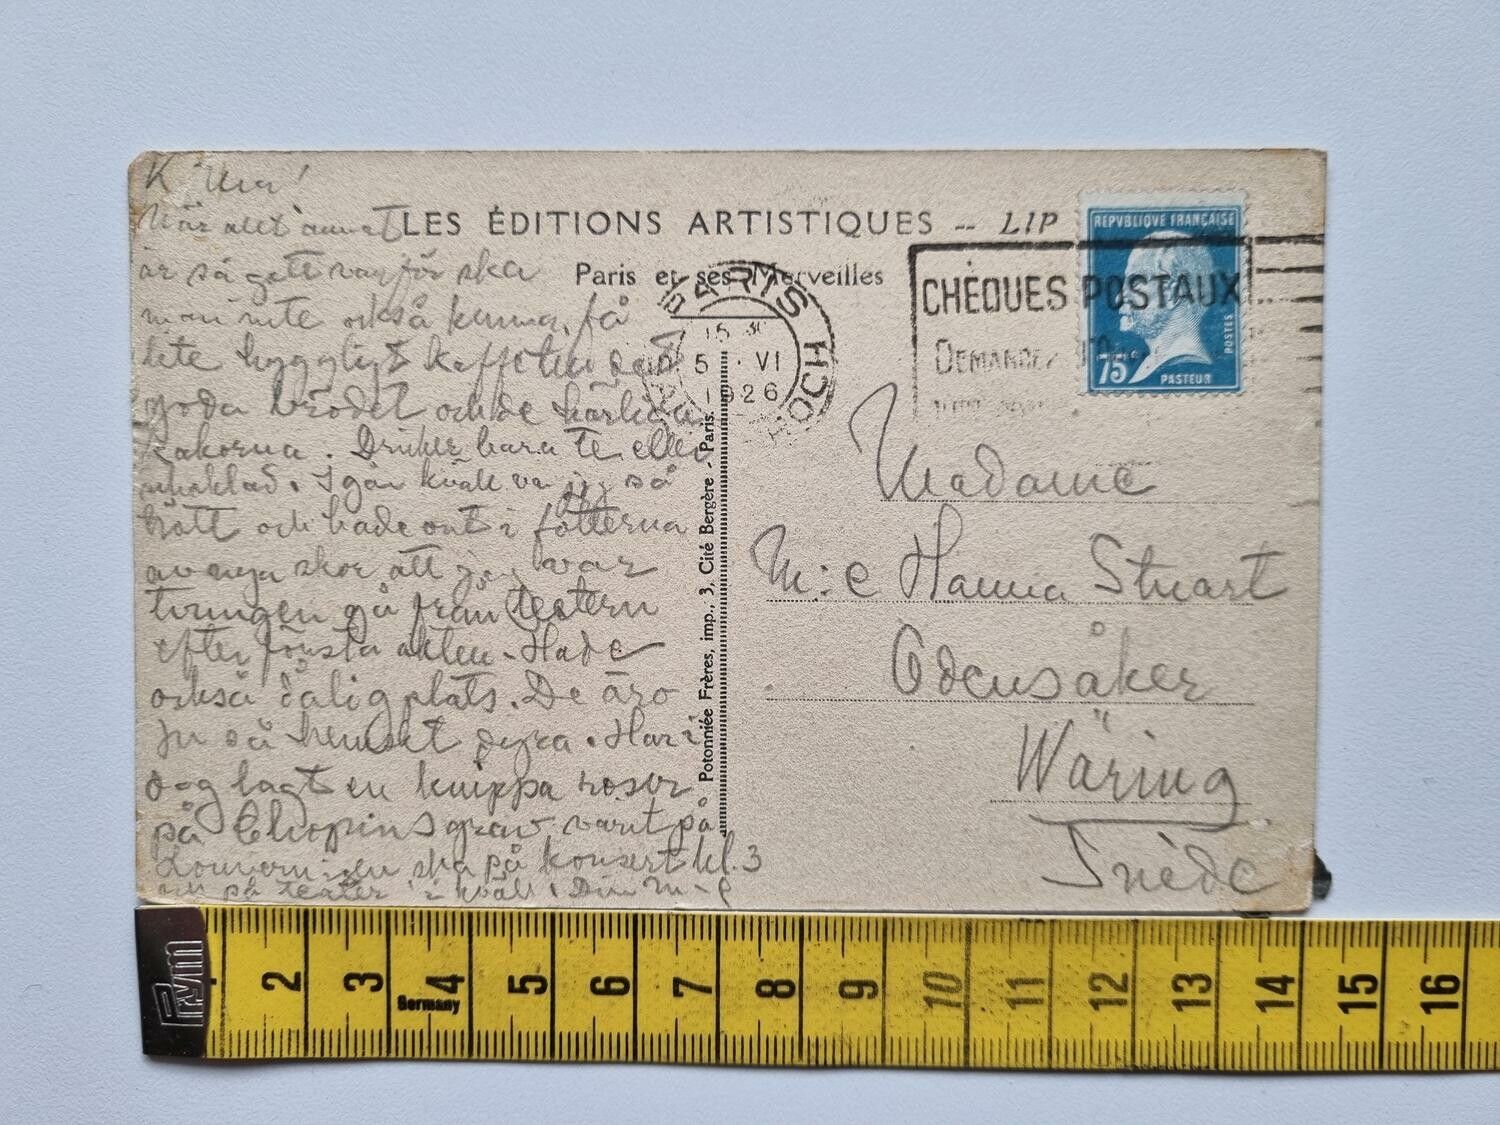 K
När allt annat
är så gott varför ska
man inte också kunna få
lite hyggligt kaffe till det
goda brödet och de härliga
kakorna. Dricker bara te eller
choklad. Igår kväll var jag så
trött och hade ont i fötterna
av nya skor att jag var
tvungen gå från teatern
efter första akten. Hade
också dålig plats. De äro
ju så hemskt dyra. Har i
dag lagt en knippa rosor
på Chopins grav, varit på
Louvern, ska på konsert kl. 3
på teater i kväll. Din M-e
LES ÉDITIONS ARTISTIQUES -- LIP
Paris et ses Merveilles
PARIS
5 VI
1926
CHÈQUES POSTAUX
DEMANDEZ
REPVBLIQVE FRANÇAISE
POSTES
75c
PASTEUR
Potonniée Frères, imp., 3, Cité Bergère - Paris.
Madame
M:e Hanna Stuart
Odensåker
Wäring
Suède
Prym
Germany
2 3 4 5 6 7 8 9 10 11 12 13 14 15 16